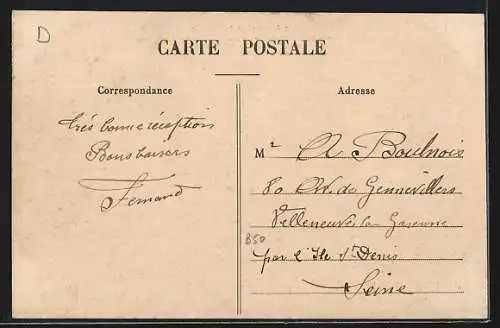 D
CARTE POSTALE
Correspondance
Adresse
très bonne réception
Bons baisers
Fernand
Mr A Boulnois
80 Av. de Gennevilliers
Villeneuve la Garenne
B50
par l'Ile St Denis
Seine